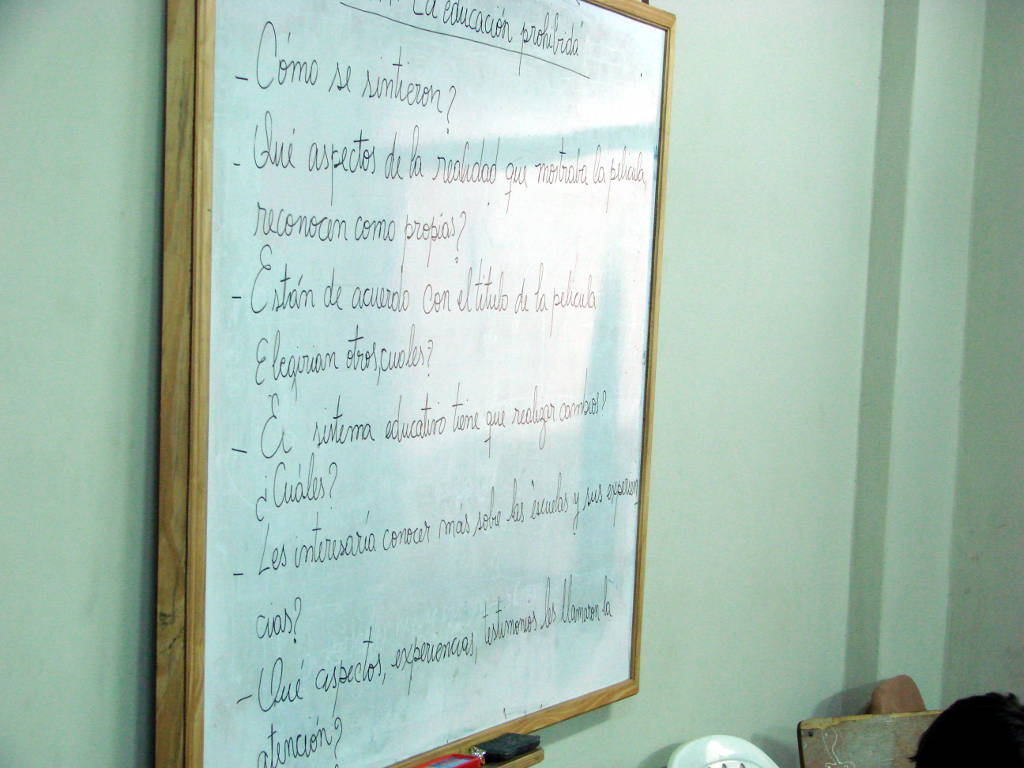 La educación prohibida
- Cómo se sintieron?
- Qué aspectos de la realidad que mostraba la película
reconocen como propias?
- Están de acuerdo con el título de la película
Elegirian otros, cuales?
- El sistema educativo tiene que realizar cambios?
¿Cuáles?
- Les interesaría conocer más sobre las escuelas y sus experien
cias?
- Qué aspectos, experiencias, testimonios les llamaron la
atención?